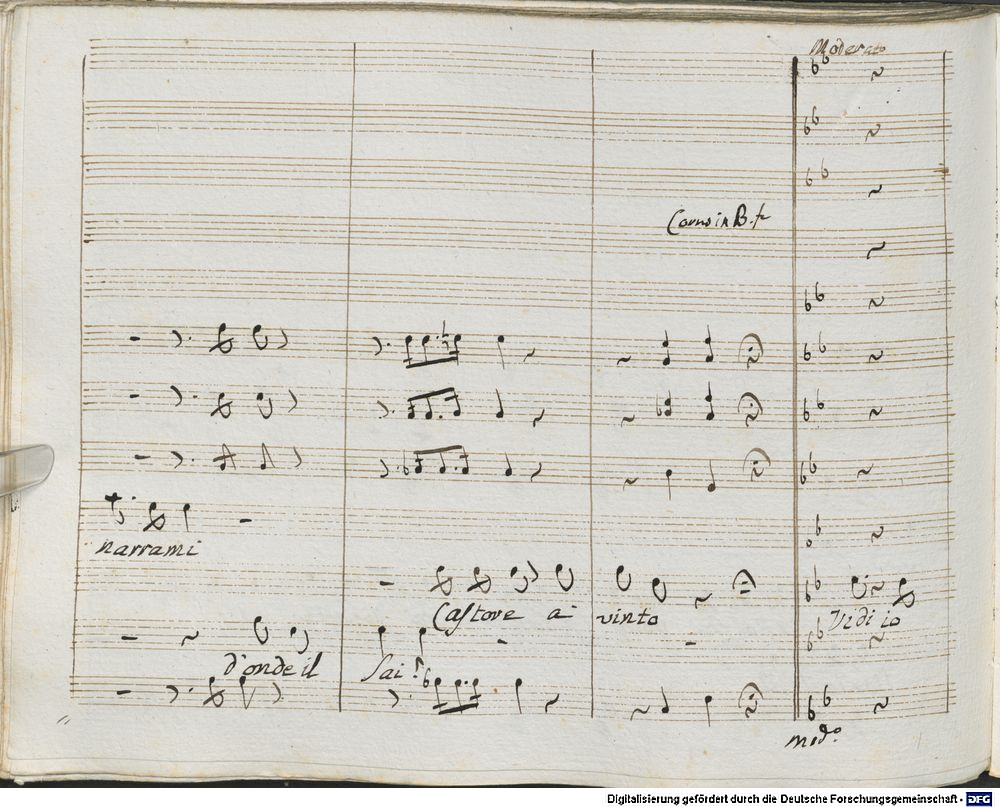 Moderato
Corno in B. fa
narrami
Castore ai vinto
Vidi io
d'onde il Sai?
mod.º
Digitalisierung gefördert durch die Deutsche Forschungsgemeinschaft - DFG